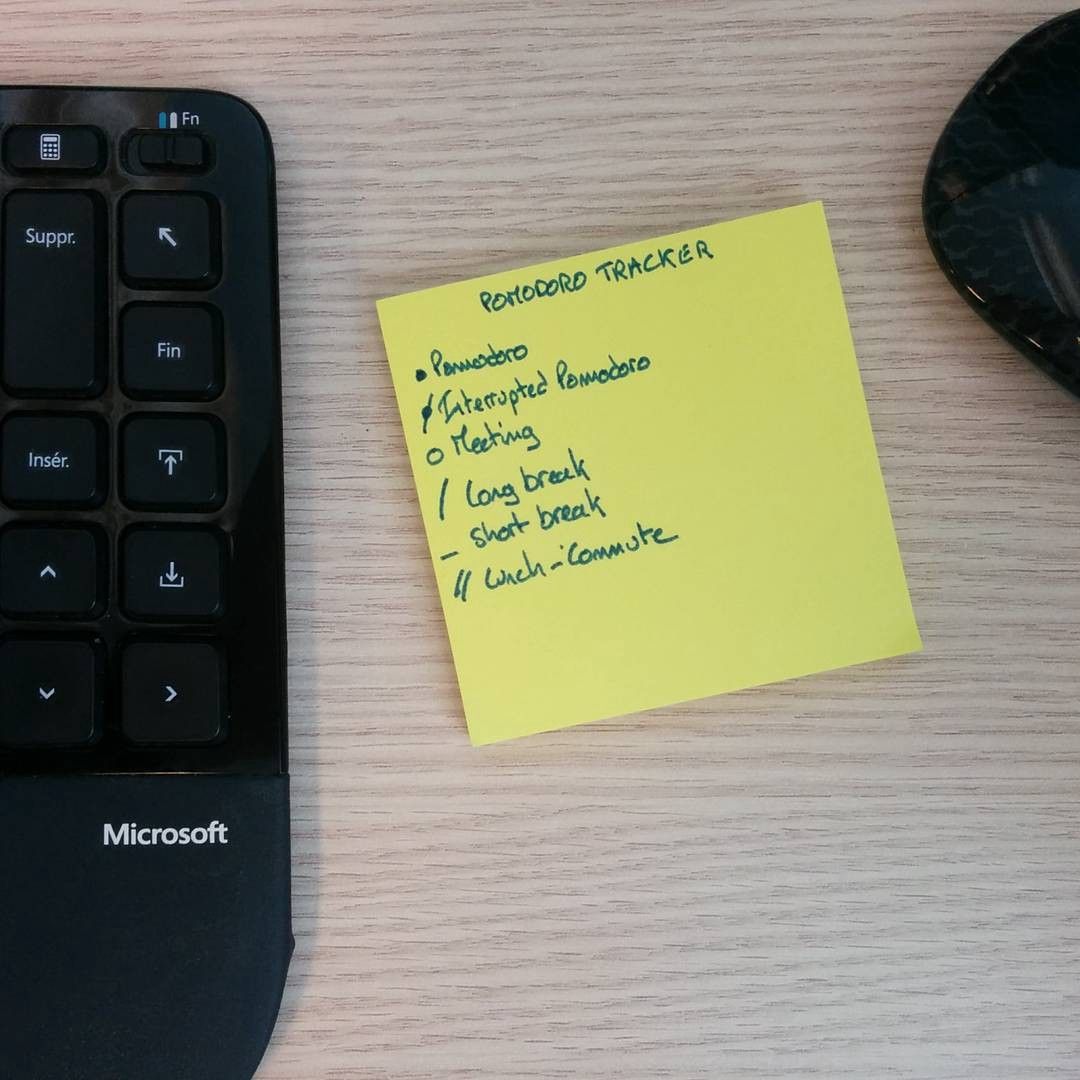 Fn
Suppr.
Fin
Insér.
Microsoft
POMODORO TRACKER
• Pommodoro
/ Interrupted Pommodoro
O Meeting
/ Long break
– short break
// Lunch - Commute